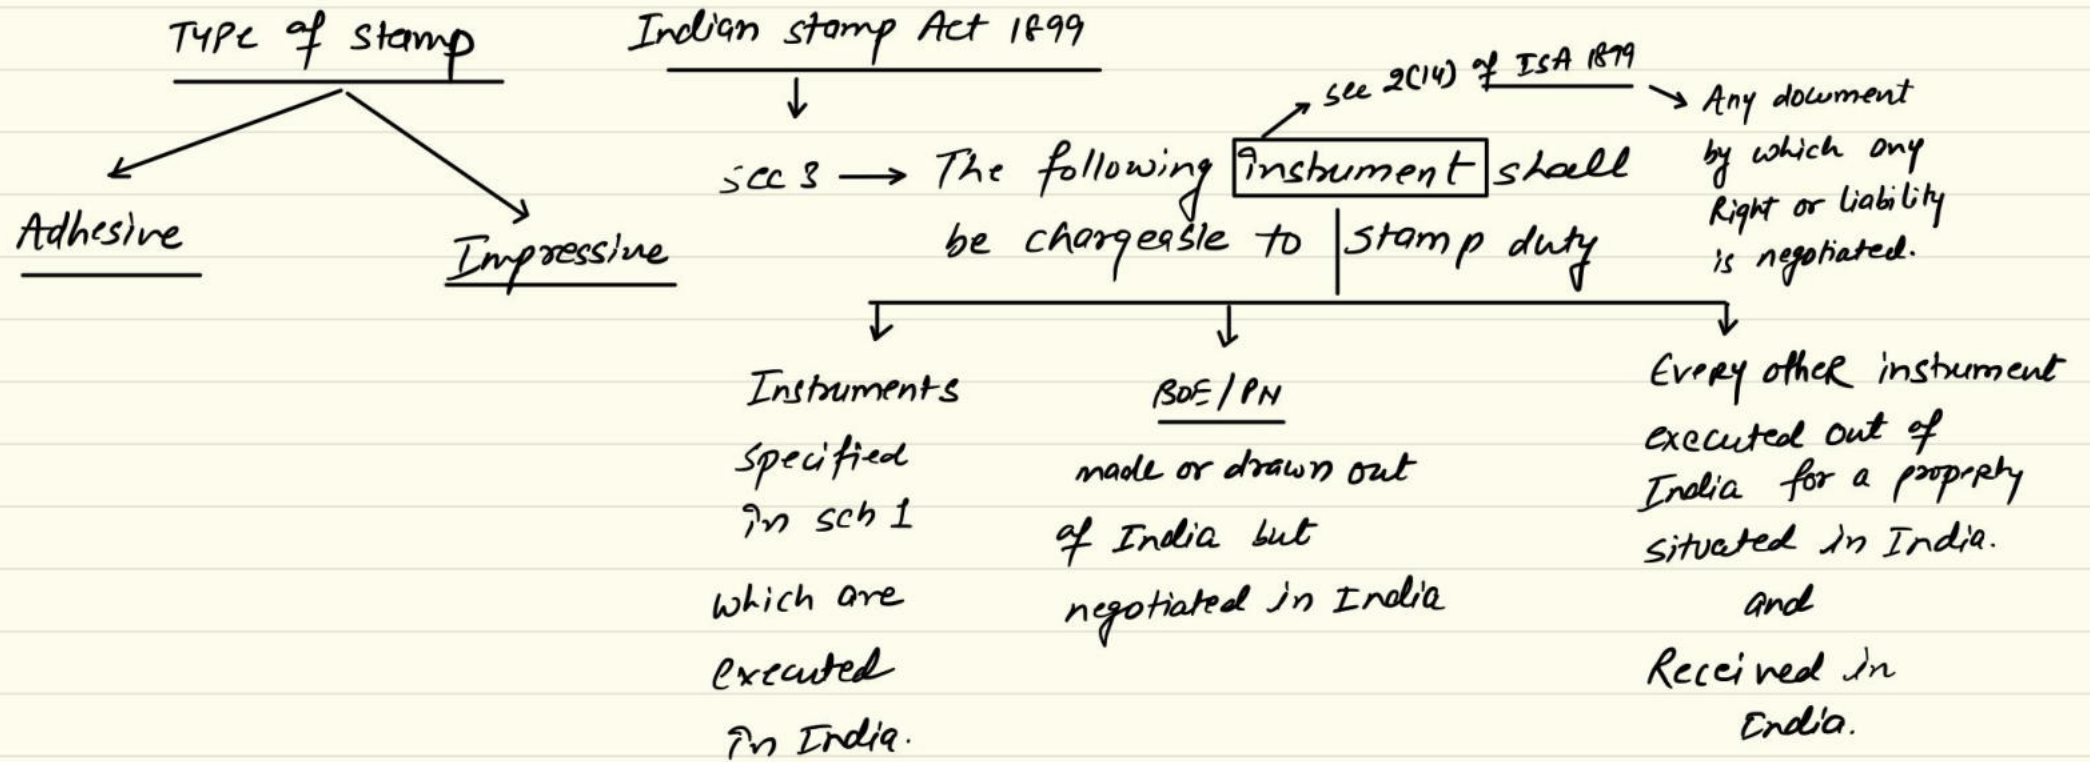 Type of stamp
Adhesive
Impressive
Indian stamp Act 1899
sec 3 → The following instrument shall
be chargeable to stamp duty
sec 2(14) of ISA 1899
Any document
by which any
Right or liability
is negotiated.
Instruments
specified
in sch 1
which are
executed
in India.
BOE/PN
made or drawn out
of India but
negotiated in India
Every other instrument
executed out of
India for a property
situated in India.
and
Received in
India.